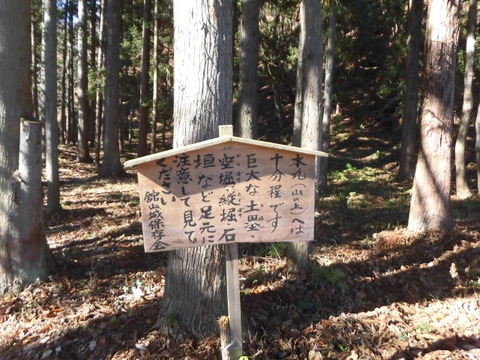 本丸(山の上)へは
十分程です
巨大な土塁、
空堀、縦堀、石
垣など足元に
注意して見て
ください
舘山城保存会